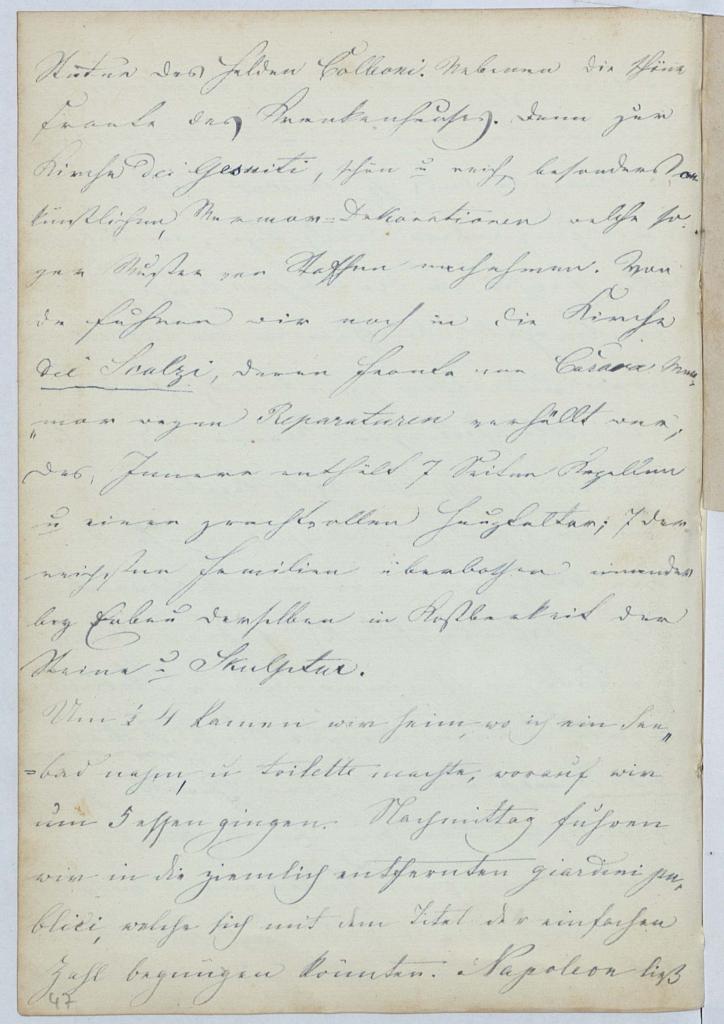 Statue des Helden Colleoni. Nebenan die schöne
Fronte des Krankenhauses. Dann zur
Kirche dei Gesuiti, schön u reich, besonders an
künstlichen Marmor-Dekorationen welche so,
gar Muster von Stoffen nachahmen. Von
da fuhren wir noch in die Kirche
dei Scalzi, deren Fronte von Carara Mar„
„mor wegen Reparaturen verhüllt war;
das Innere enthält 7 Seiten Kapellen
u einen prachtvollen Hauptaltar; 7 der
reichsten Familien überbothen einander
bey Erbau derselben in Kostbarkeit der
Steine u Skulptur.
Um ½ 4 kamen wir heim, wo ich ein See„
=bad nahm, u toilette machte, worauf wir
um 5 essen gingen. Nachmittag fuhren
wir in die ziemlich entfernten giardini pu„
blici, welche sich mit dem Titel der einfachen
Zahl begnügen könnten. Napoleon ließ
47